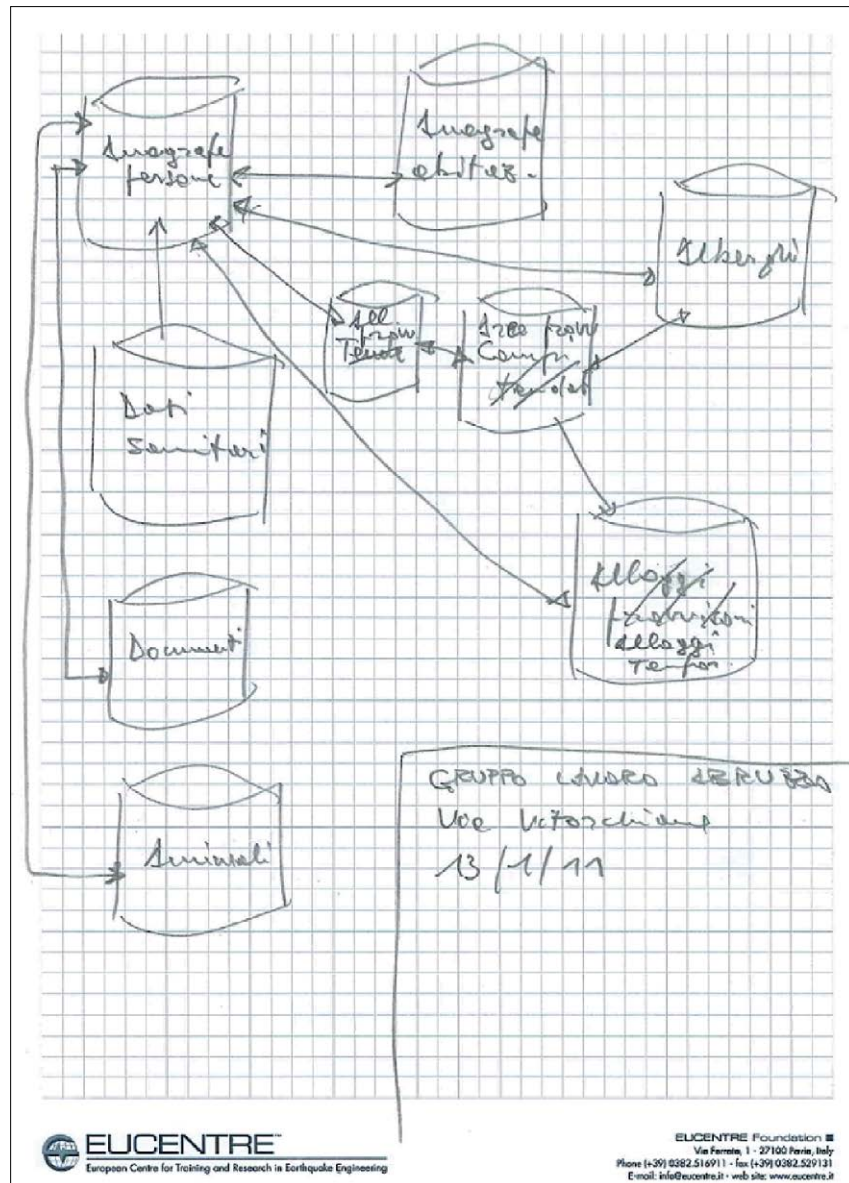 Anagrafe
persone
Anagrafe
abitaz.
Alberghi
All
provv
Tende
Aree provv
Campi
tendop
Dati
Sanitari
Alloggi
provvisori
Alloggi
Tempor.
Documenti
Animali
GRUPPO LAVORO ABRUZZO
Via Vitorchiano
13/1/11
EUCENTRE™
European Centre for Training and Research in Earthquake Engineering
EUCENTRE Foundation
Via Ferrata, 1 - 27100 Pavia, Italy
Phone (+39) 0382.516911 - fax (+39) 0382.529131
E-mail: info@eucentre.it - web site: www.eucentre.it